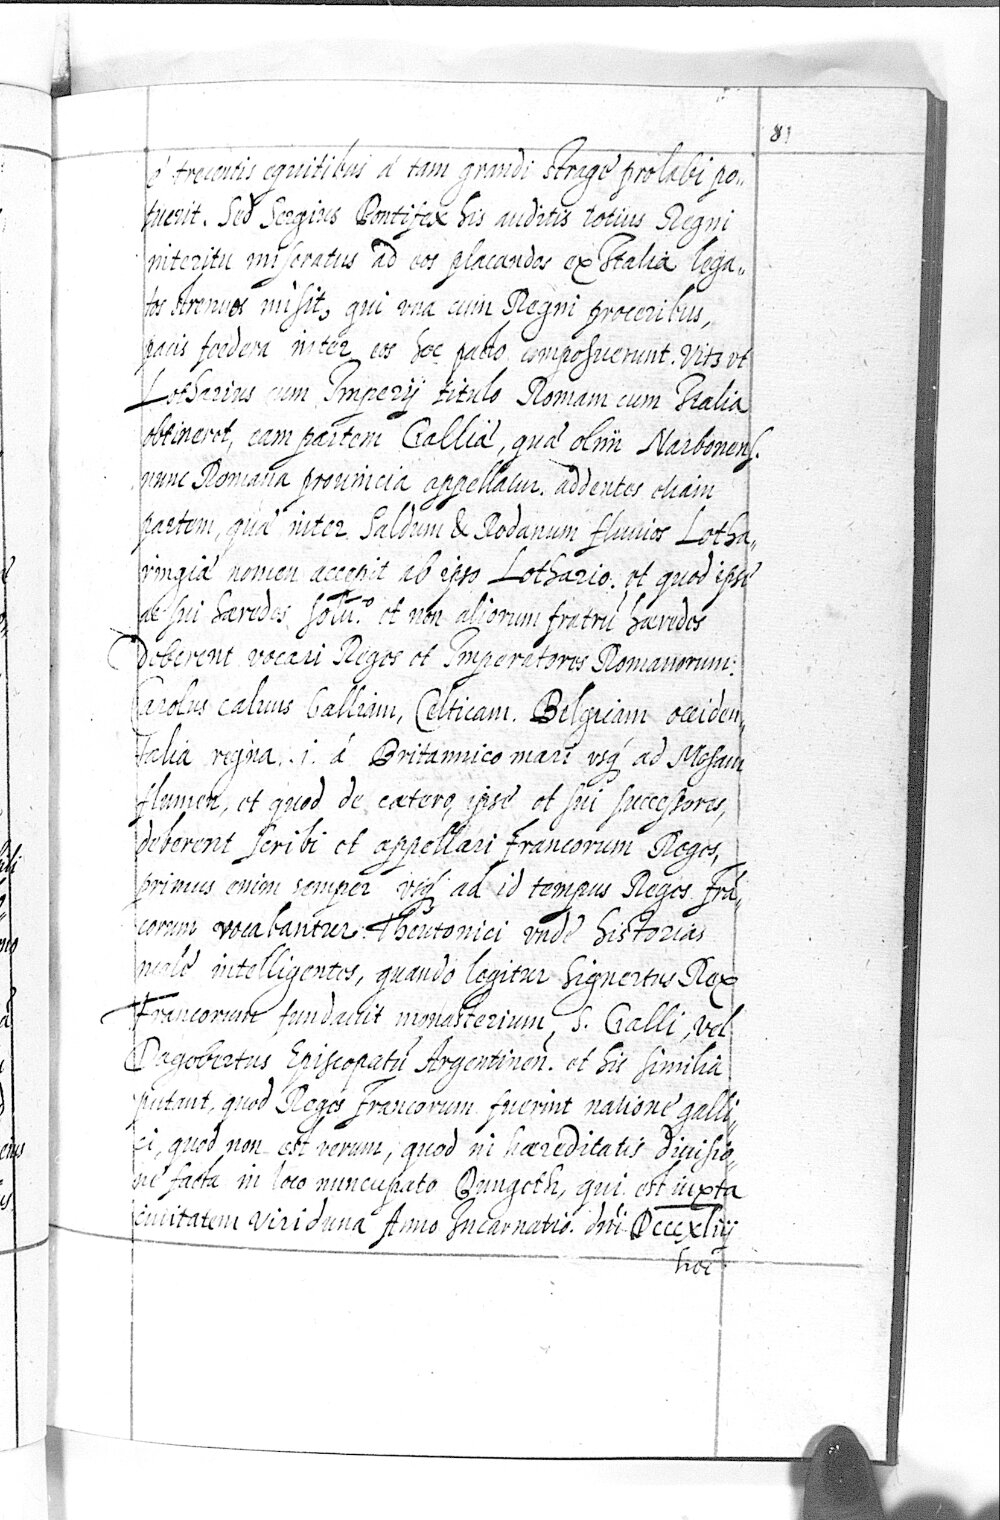 81
è trecentis equitibus á tam grandi strage prolabi po„
tuerit. Sed Sergius Pontifex his auditis totius Regni
interitu miseratus ad eos placandos ex Italia lega„
tos strenuos misit, qui una cum Regni proceribus,
pacis foedera inter eos hoc pacto composuerunt. Vitz ut
Lotharius cum Imperij titulo Romam cum Italia
obtineret, eam partem Galliæ, quæ olim Narbonens.
nunc Romana prouincia appellatur. addentes etiam
partem, quæ inter Saldum & Rodanum fluuios Lotha„
ringiæ nomen accepit ab ipso Lothario. et quod ipse
ac sui hæredes solũ.º et non aliorum fratrũ hæredes
deberent vocari Reges et Imperatores Romanorum:
Carolus caluus Galliam, Celticam. Belgicam occiden„
talia regna .i. á Britannico mari usq̃ ad Mosam
flumen, et quod de cætero, ipse et sui successores,
deberent scribi et appellari francorum Reges,
primus enim semper usq̃ ad id tempus Reges frã„
corum vocabantur Theutonici unde historias
male intelligentes, quando legitur Signertus Rex
Francorum fundauit monasterium S. Galli, vel
Dagobertus Episcopatũ Argentineñ. et his similia
putant, quod Reges francorum fuerint natione galli„
ci, quod non est verum, quod in hæreditatis diuisio„
ne facta in loco nuncupato Dungeth, qui est iuxta
ciuitatem viriduna Anno Incarnatio. dñi. Dcccxliij
hoc